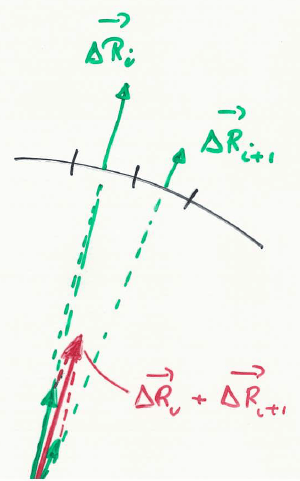 ΔR⃗ᵢ
ΔR⃗ᵢ₊₁
ΔR⃗ᵢ + ΔR⃗ᵢ₊₁